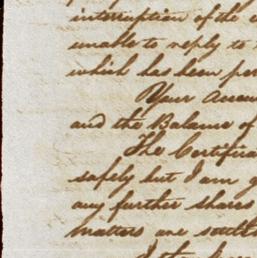 interruption of the
unable to reply to
which has been per
Your
and the Balance of
The Certifica
safely but I am g
any further shares
matters are settle